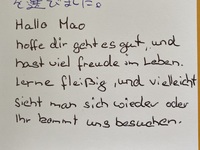 を選びました。
Hallo Mao
hoffe dir geht es gut, und
hast viel freude im Leben.
Lerne fleißig, und vielleicht
sieht man sich wieder oder
Ihr kommt uns besuchen.